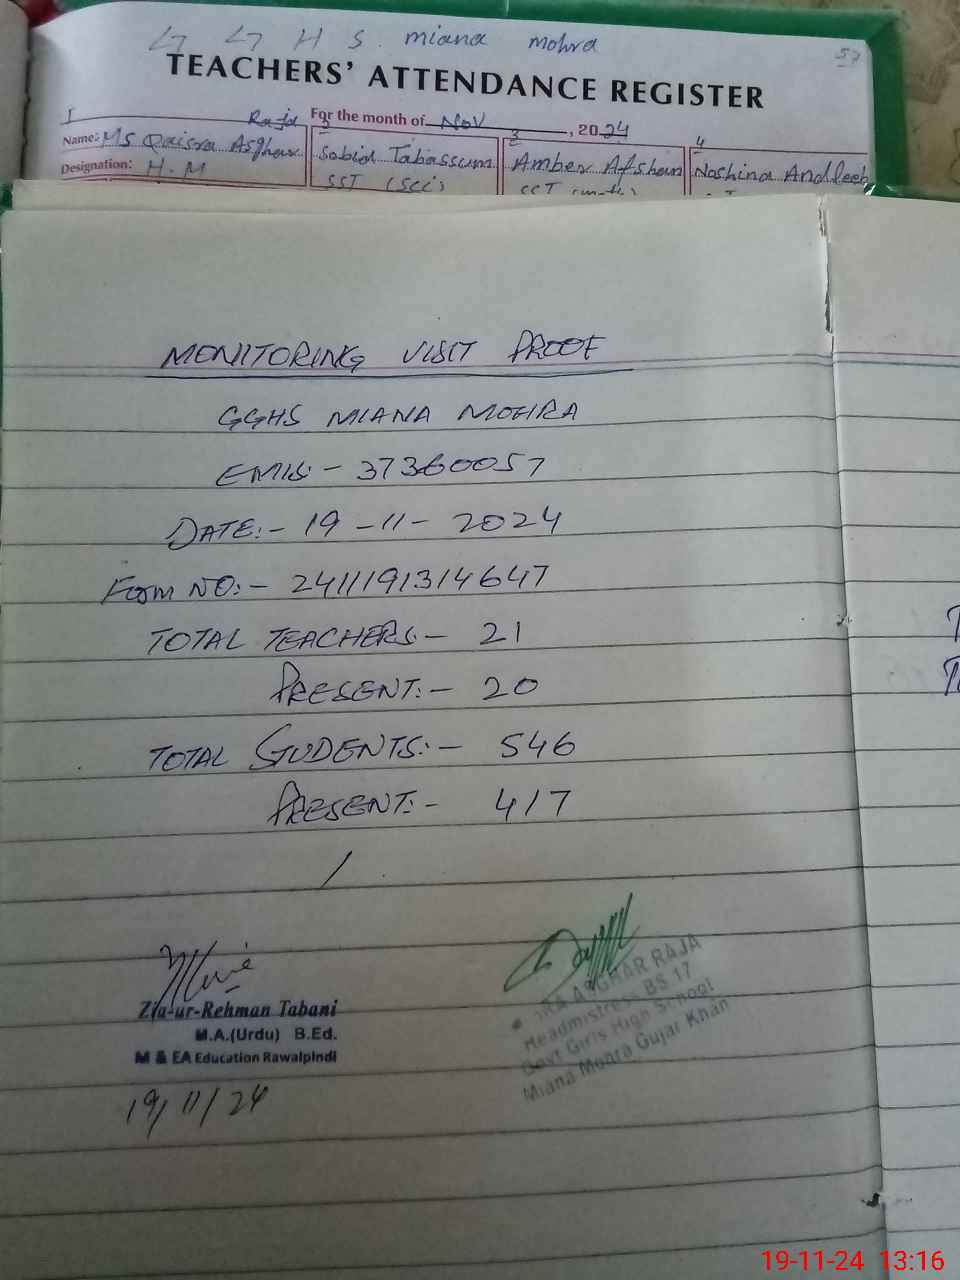 G G H S miana mohra
57
TEACHERS' ATTENDANCE REGISTER
For the month of Nov, 2024
1 Raja 2 3 4
Name: Ms Qaisra Asghar Sobia Tabassum Amber Afshan Noshina Andleeb
Designation: H.M SST (Sci) SST
MONITORING VISIT PROOF
GGHS MIANA MOHRA
EMIS:- 37360057
DATE:- 19-11-2024
Form NO:- 2411191314647
TOTAL TEACHERS:- 21
PRESENT:- 20
TOTAL STUDENTS:- 546
PRESENT:- 417
Zia-ur-Rehman Tabani
M.A.(Urdu) B.Ed.
M & EA Education Rawalpindi
19/11/24
ASGHAR RAJA
Headmistress BS 17
Govt Girls High School
Miana Mohra Gujar Khan
19-11-24 13:16